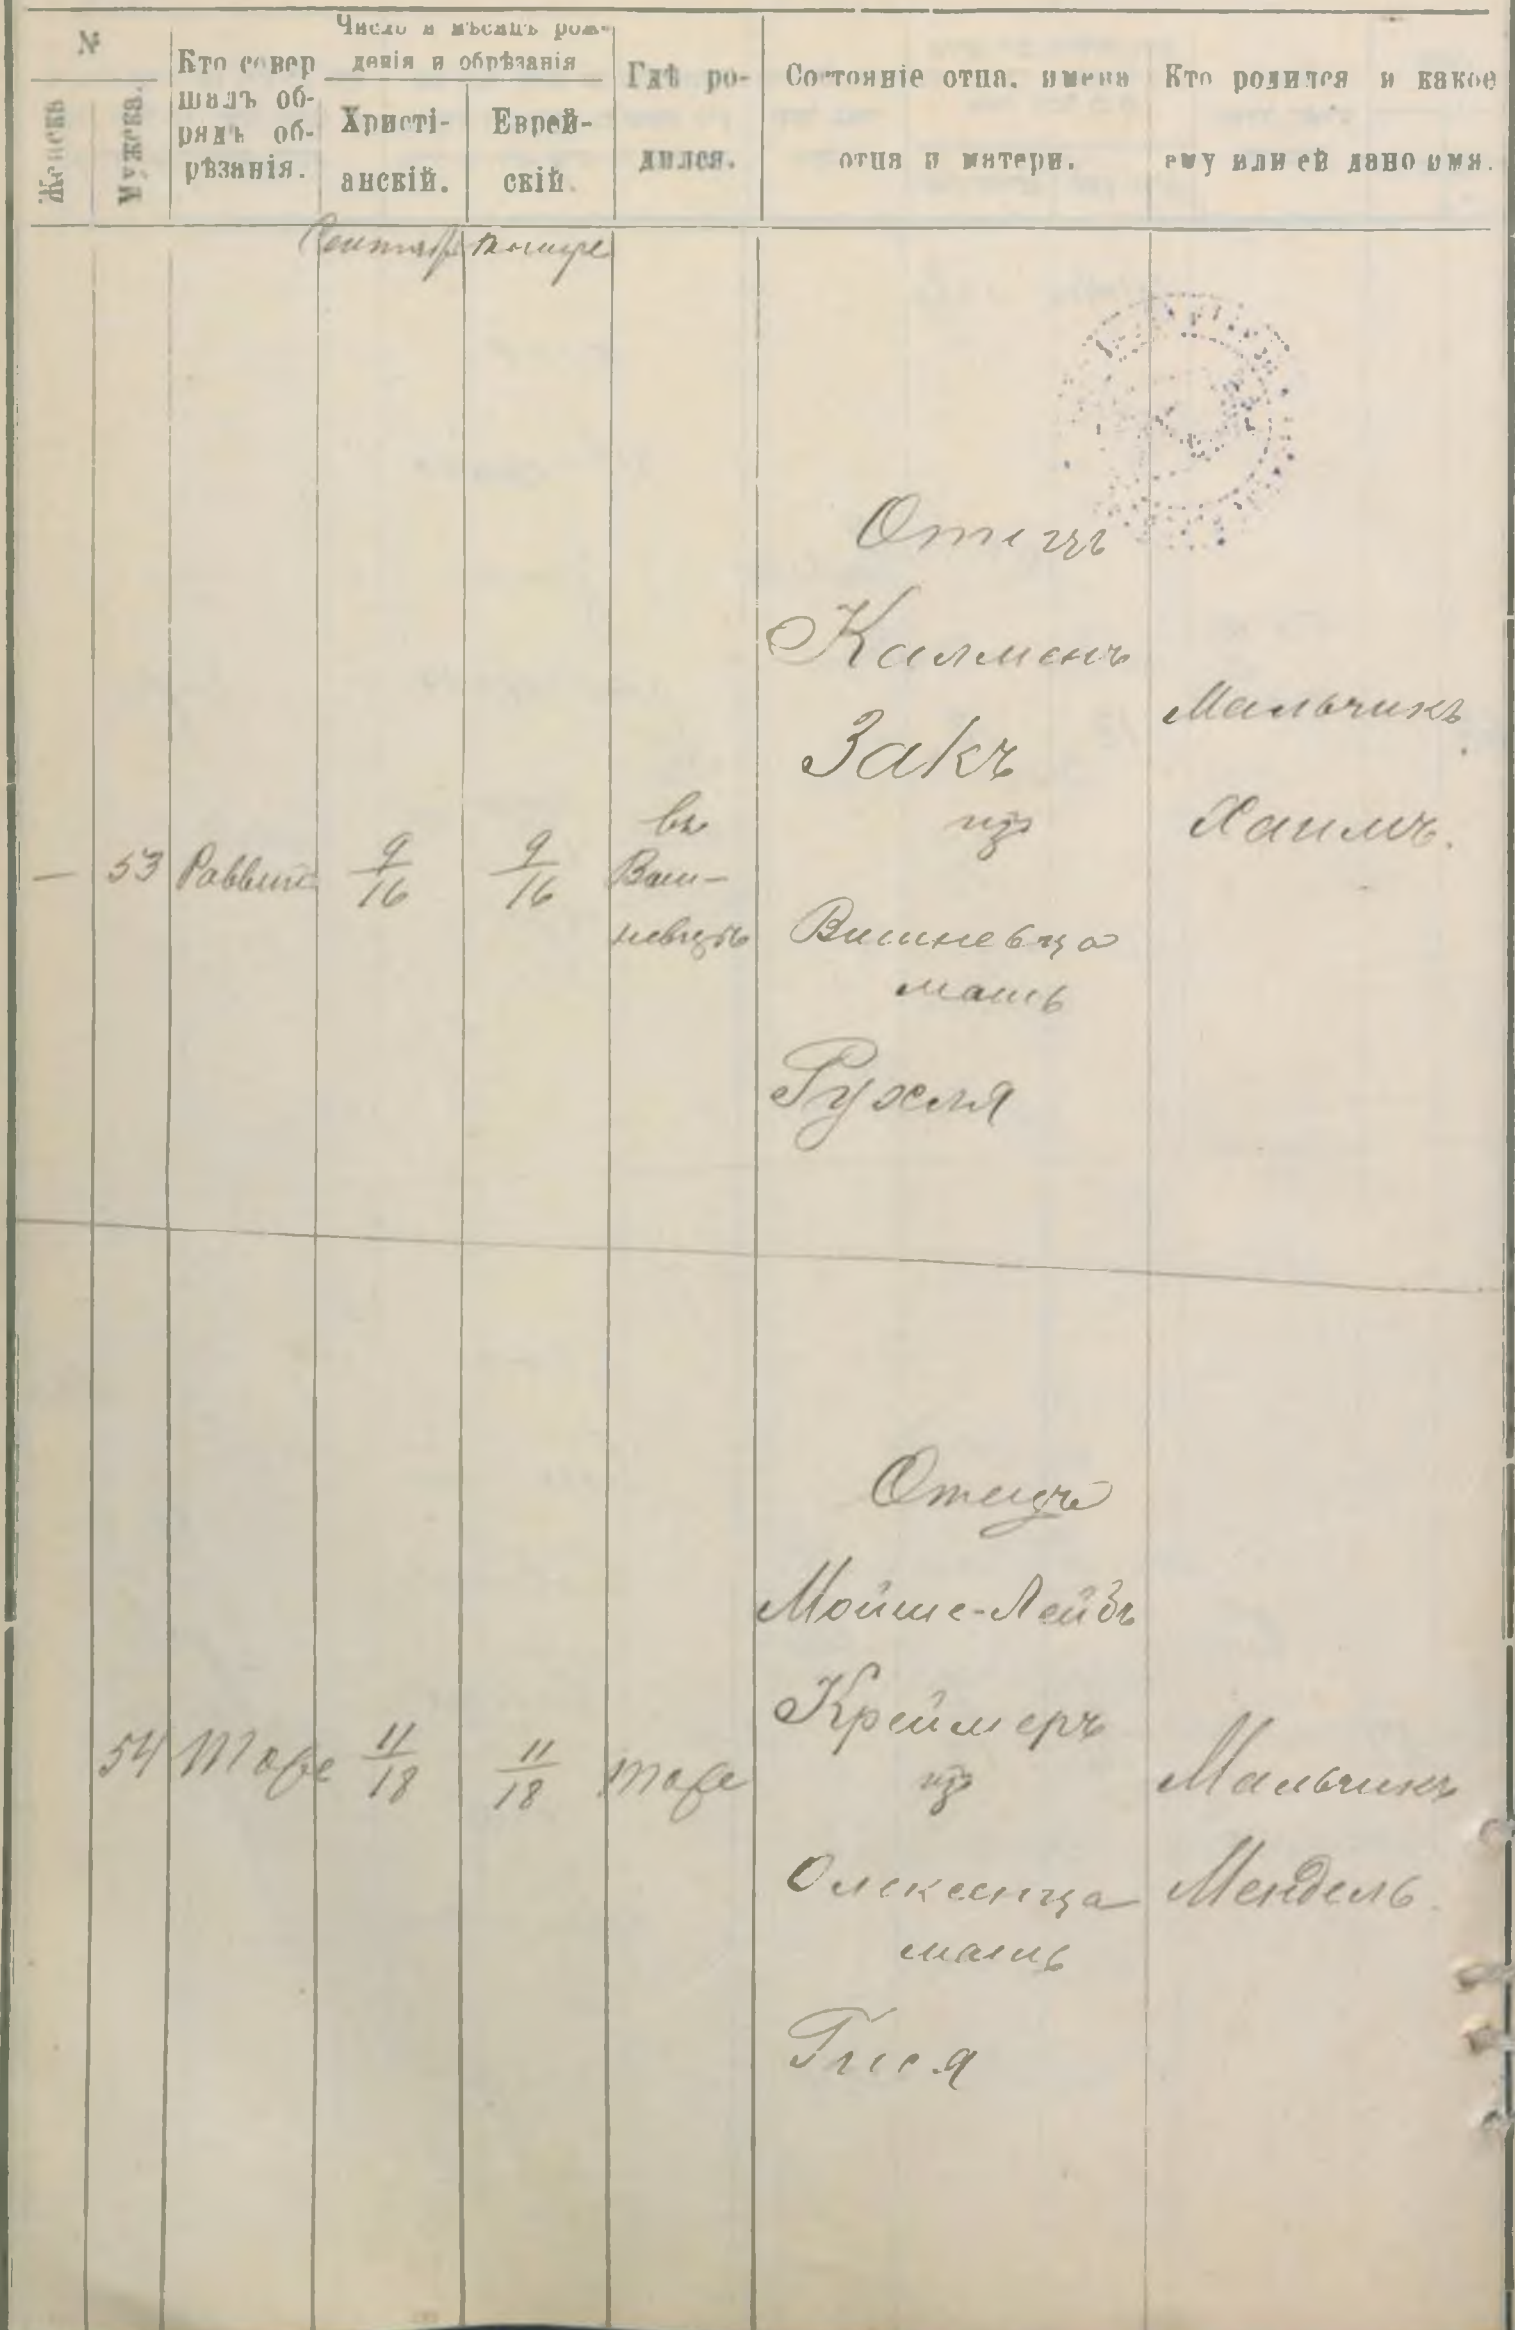 №
Женска
Мужска.
Кто совер
шалъ об-
рядъ об-
рѣзанія.
Число и мѣсяцъ рож-
денія и обрѣзанія
Христі-
анскій.
Еврей-
скій.
Гдѣ ро-
дился.
Состояніе отца, имена
отца и матери.
Кто родился и какое
ему или ей дано имя.
Сентябр Тишре
— 53 Раввинъ 9/16 9/16
въ
Виш-
невцѣ
Отецъ
Калменъ
Закъ
изъ
Вишневца
мать
Рухля
Мальчикъ
Хаимъ.
54 Тоже 11/18 11/18 тоже
Отецъ
Мойше-Лейбъ
Креймеръ
изъ
Олексинца
мать
Гися
Мальчикъ
Мендель.